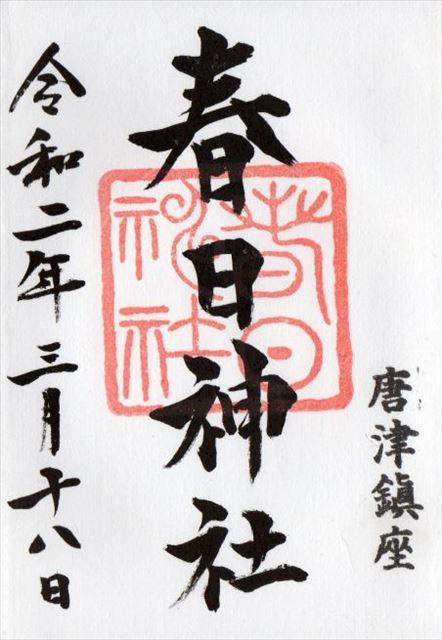 唐津鎮座
春日神社
春日
神社
令和二年三月十八日